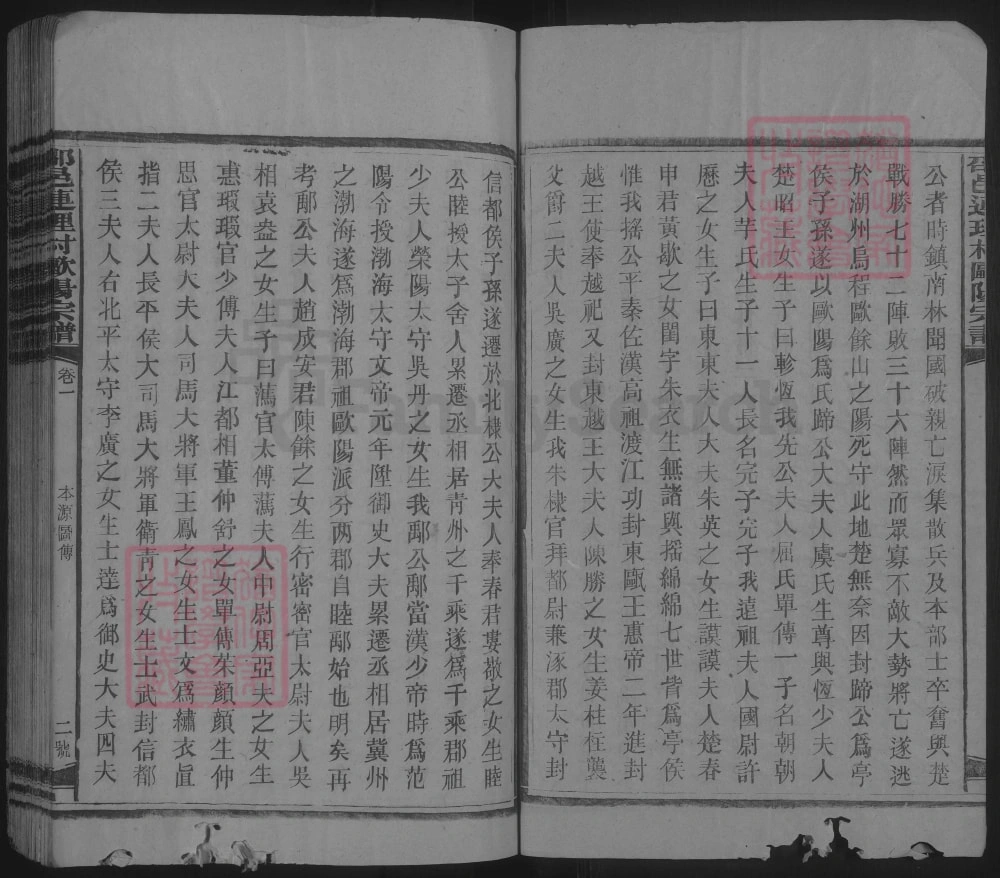 公者時鎮南林聞國破親亡淚集散兵及本部士卒奮與楚
戰勝七十二陣敗三十六陣然而眾寡不敵大勢將亡遂逃
於湖州烏程歐餘山之陽死守此地楚無奈因封蹄公爲亭
侯子孫遂以歐陽爲氏蹄公大夫人虞氏生尊與恆少夫人
楚昭王女生子曰軫恆我先公夫人屈氏單傳一子名朝朝
夫人芋氏生子十一人長名完子完子我遠祖夫人國尉許
歷之女生子曰東東夫人大夫朱英之女生謨謨夫人楚春
申君黃歇之女閏字朱衣生無諸與搖綿綿七世皆爲亭侯
惟我搖公平秦佐漢高祖渡江功封東甌王惠帝二年進封
越王使奉越祀又封東越王大夫人陳勝之女生姜枉枉襲
父爵二夫人吳廣之女生我朱棣官拜都尉兼涿郡太守封
信都侯子孫遂遷於北棣公大夫人奉春君婁敬之女生睦
公睦授太子舍人累遷丞相居靑州之千乘遂爲千乘郡祖
少夫人榮陽太守吳丹之女生我鄢公鄢當漢少帝時爲范
陽令授渤海太守文帝元年陞御史大夫累遷丞相居冀州
之渤海遂爲渤海郡祖歐陽派分兩郡自睦鄢始也明矣再
考鄢公夫人趙成安君陳餘之女生行密密官太尉夫人吳
相袁盎之女生子曰蕅官太傅蕅夫人中尉周亞夫之女生
惠瑕瑕官少傅夫人江都相董仲舒之女單傳茱顔顔生仲
思官太尉大夫人司馬大將軍王鳳之女生士文爲繡衣直
指二夫人長平侯大司馬大將軍衛靑之女生士武封信都
侯三夫人右北平太守李廣之女生士達爲御史大夫四夫
邵邑連理村歐陽宗譜
卷一
本源圖傳
二號